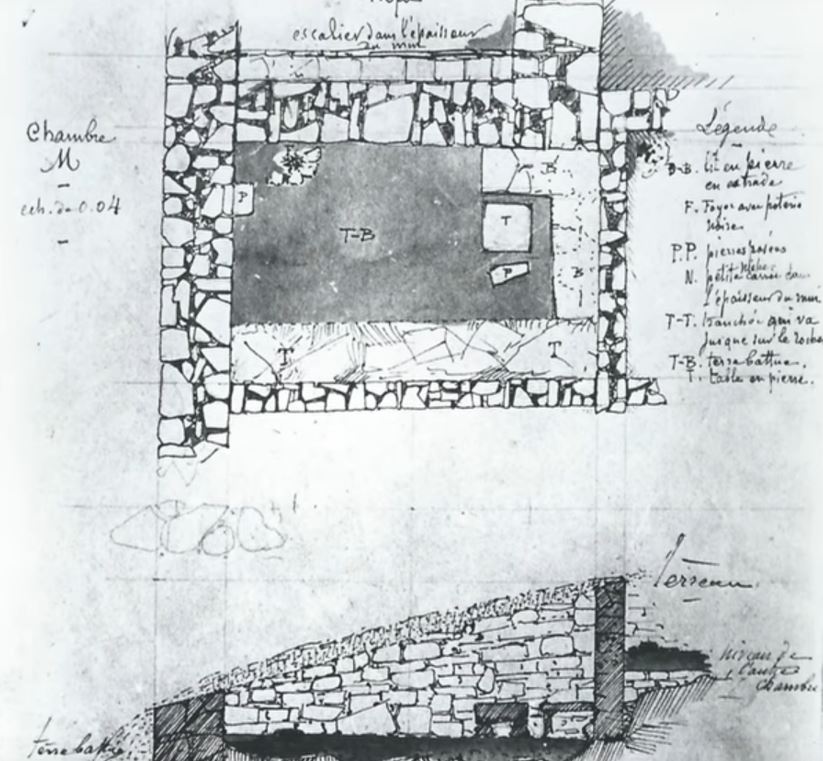 escalier dans l'épaisseur
du mur
Chambre
M
ech. de 0.04
Légende
B-B. lit en pierre
en estrade
F. Foyer avec poterie
noire.
P.P. pierres
N. petite niche carrée dans
l'épaisseur du mur
T-T. tranchée qui va
jusque sur le rocher
T-B. terre battue.
T. table en pierre.
P
T-B
B
T
P
B
T
T
Terreau
niveau de
l'autre
chambre
terre battue